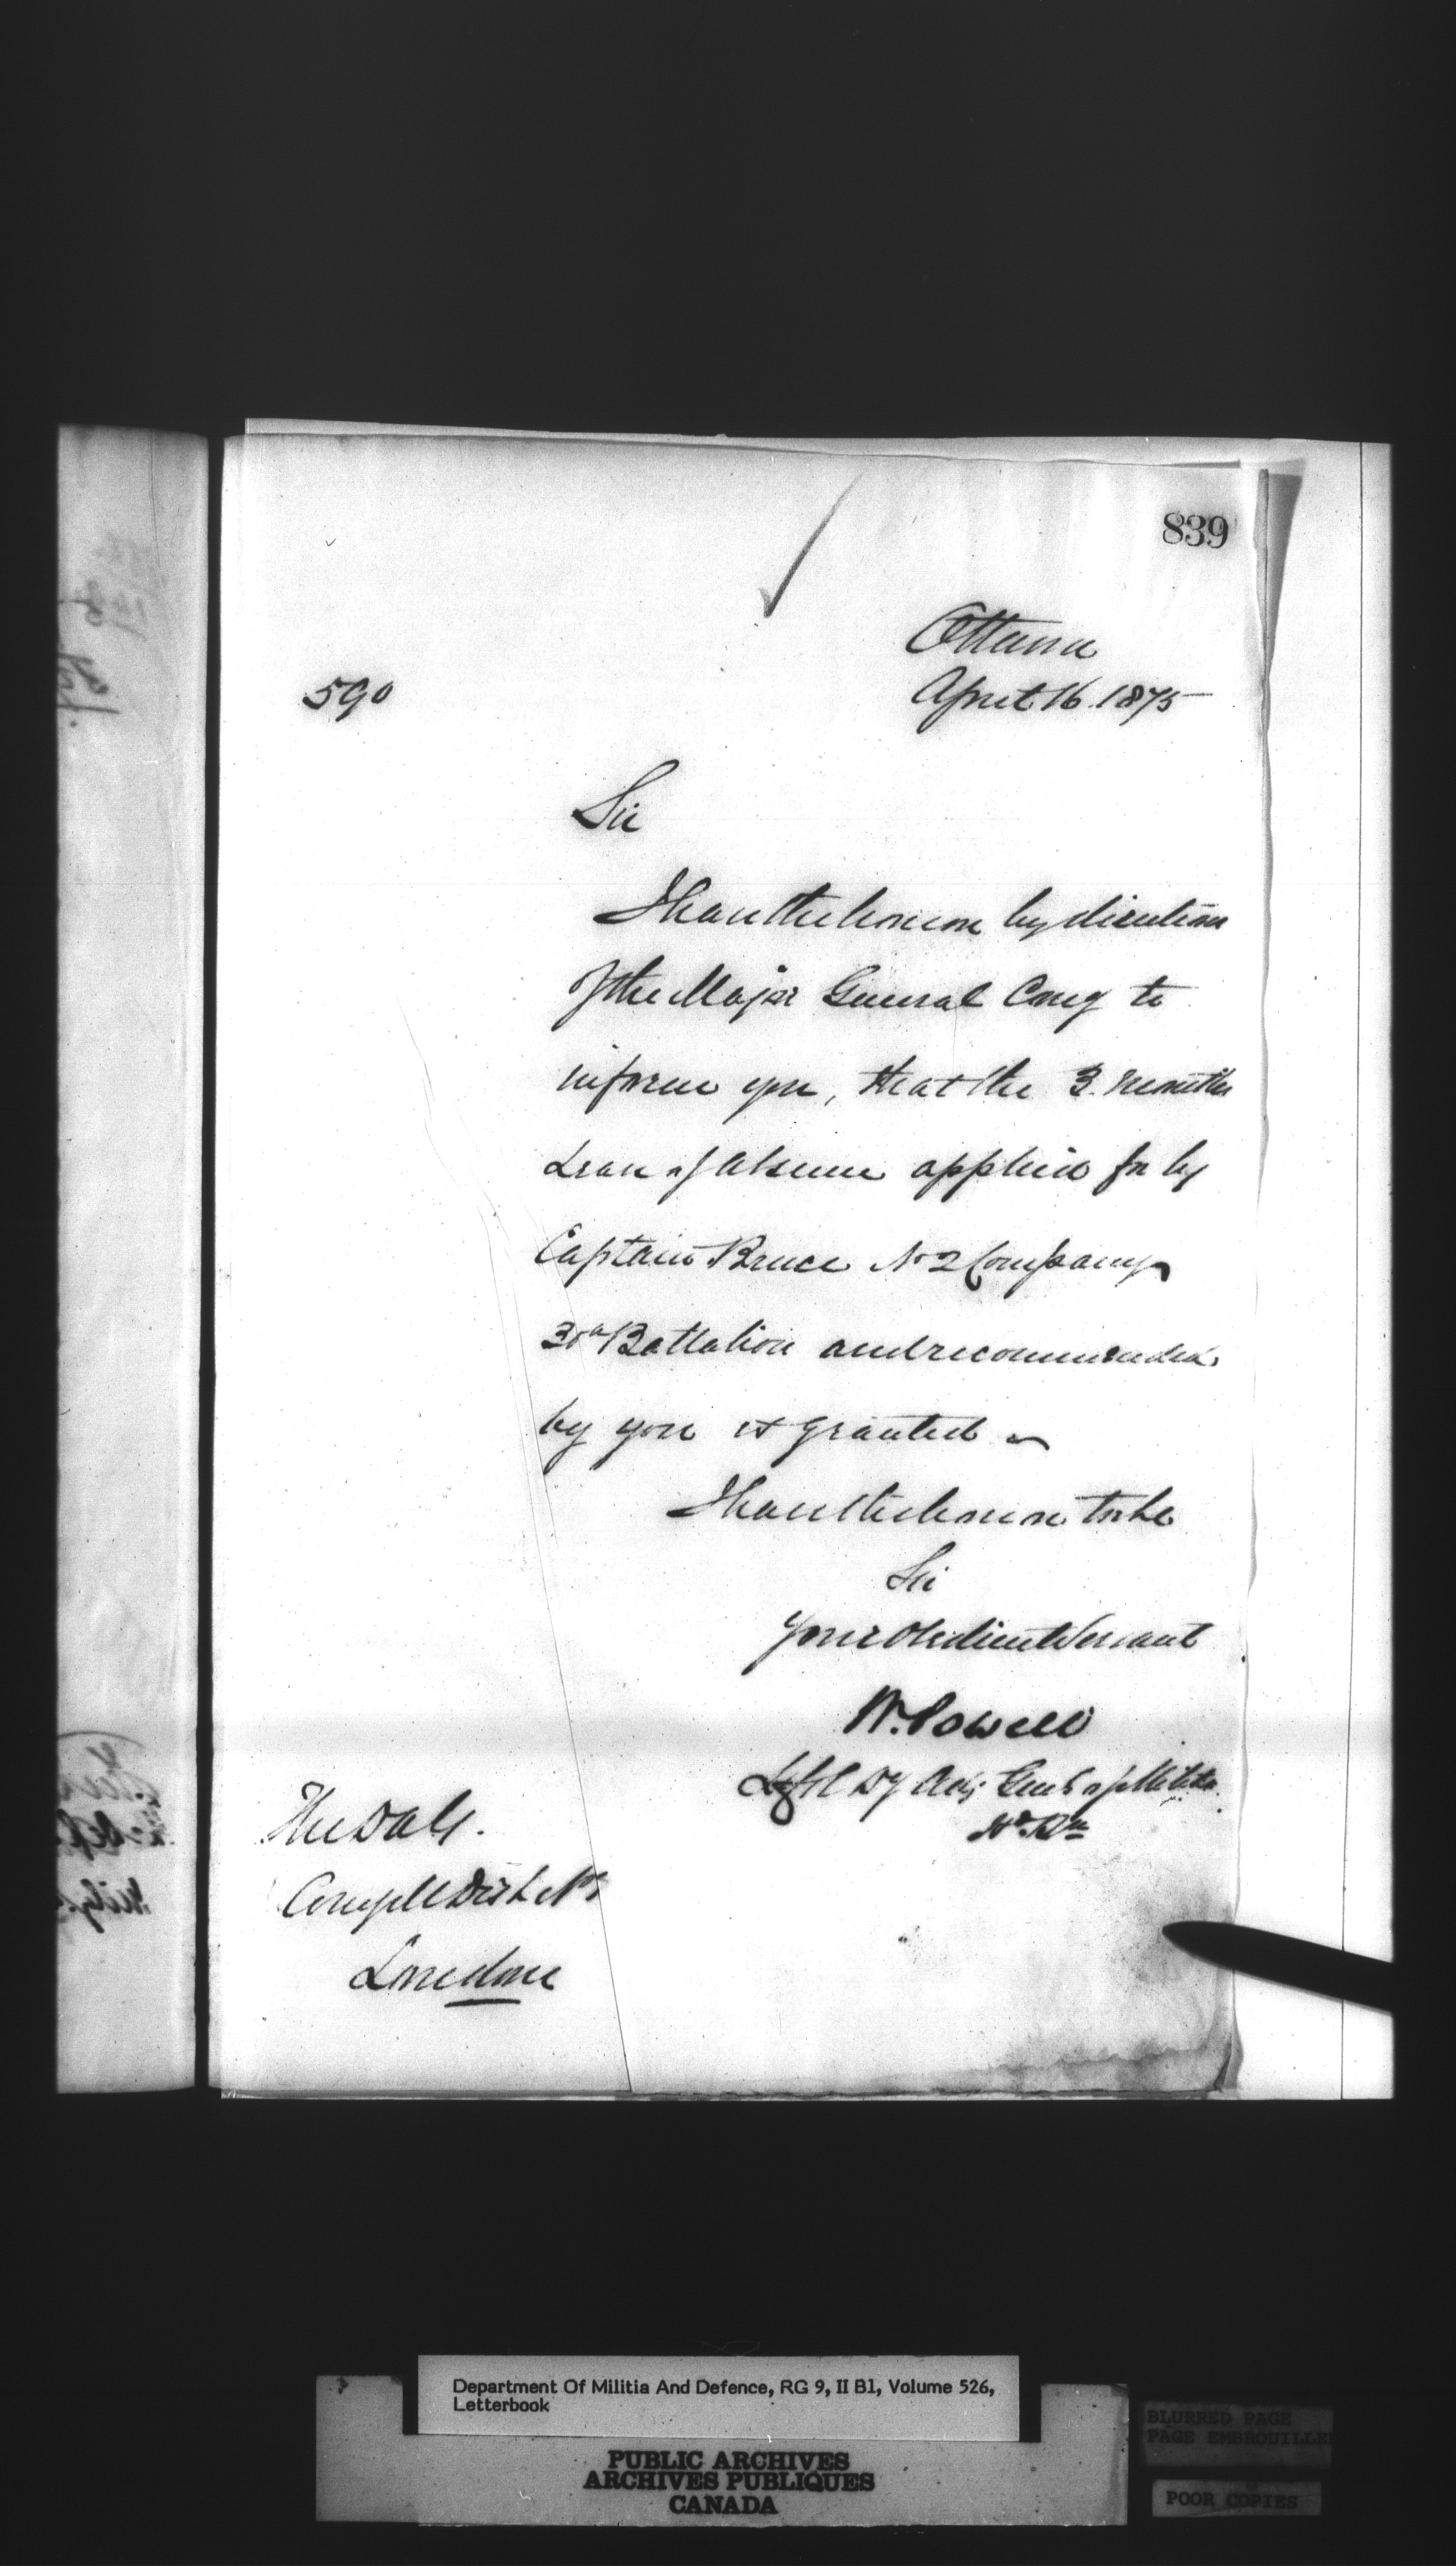 839
Ottawa
590
April 16. 1875
Sir
I have the honour by direction
of the Major General Comg to
inform you, that the 3. months
Leave of absence applied for by
Captain Bruce No 2 Company
30th Battalion and recommended
by you is granted
I have the honour to be
Sir
Your obedient Servant
W. Powell
Lt Col Dy Adj Genl of Militia
Hd. Qrs
The D A G.
Comg Ml Dist No 1
London
Department Of Militia And Defence, RG 9, II B1, Volume 526,
Letterbook
BLURRED PAGE
PAGE EMBROUILLE
PUBLIC ARCHIVES
ARCHIVES PUBLIQUES
CANADA
POOR COPIES